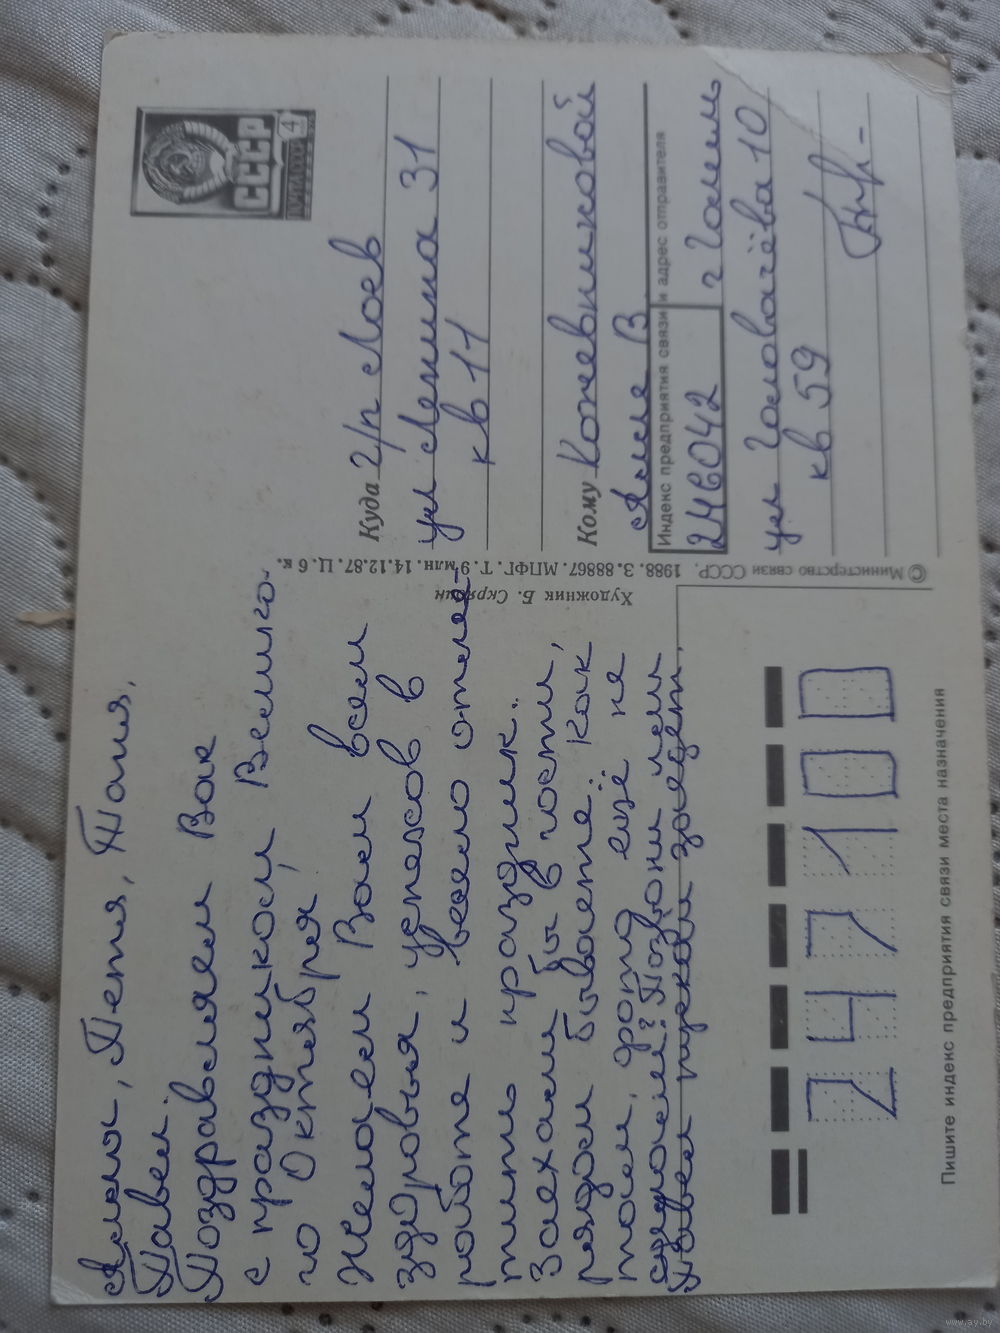 Алла, Петя, Толя,
Павел.
Поздравляем Вас
с праздником Великого
Октября
Желаем Вам всем
здоровья, успехов в
работе и весело отме-
тить праздник.
Заехали бы в гости,
рядом бываете. Как
там, фото ещё не
сделали? Позвони или
Павел пускай заедет.
ПОЧТА СССР
СССР
4
Куда г/п Лоев
ул Ленина 31
кв 11
Кому Кожевниковой
Алле В.
Индекс предприятия связи и адрес отправителя
246042 г Гомель
ул Головачёва 10
кв 59
© Министерство связи СССР. 1988. З. 88867. МПФГ. Т. 9 млн. 14.12.87. Ц. 6 к.
Художник Б. Скрябин
247100
Пишите индекс предприятия связи места назначения
www.ay.by